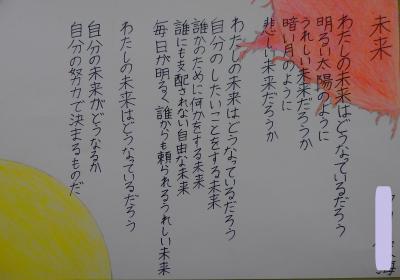 未来
わたしの未来はどうなっているだろう
明るい太陽のように
うれしい未来だろうか
暗い月のように
悲しい未来だろうか
わたしの未来はどうなっているだろう
自分のしたいことをする未来
誰かのために何かをする未来
誰にも支配されない自由な未来
毎日が明るく誰からも頼られるうれしい未来
わたしの未来はどうなっているだろう
自分の未来がどうなるか
自分の努力で決まるものだ